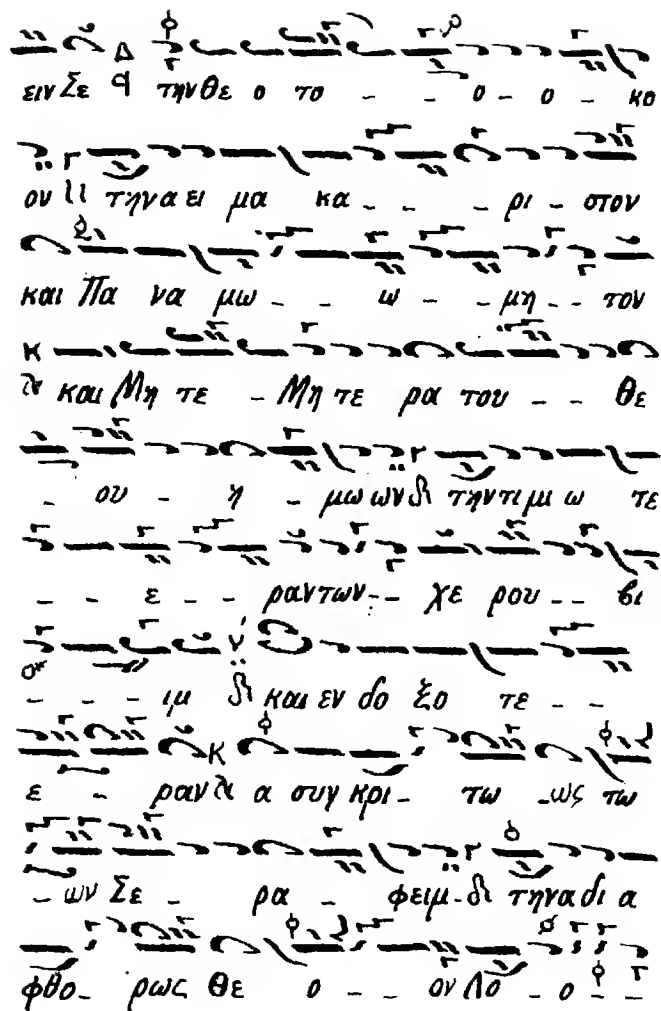 ειν Σε την Θε ο το - - ο - ο - κο
ον την α ει μα κα - - - ρι - στον
και Πα να μω - - ω - - μη - - τον
και Μη τε - Μη τε ρα του - - Θε
- ου - η - μω ων την τι μι ω τε
- - ε - - ραν των - - χε ρου - - βι
- - - - ιμ και εν δο ξο τε - -
ε - ραν α συγ κρι - τω - ως τω
- ων Σε - ρα - φειμ - την α δι α
φθο - ρως Θε ο - - ον Λο - ο - -